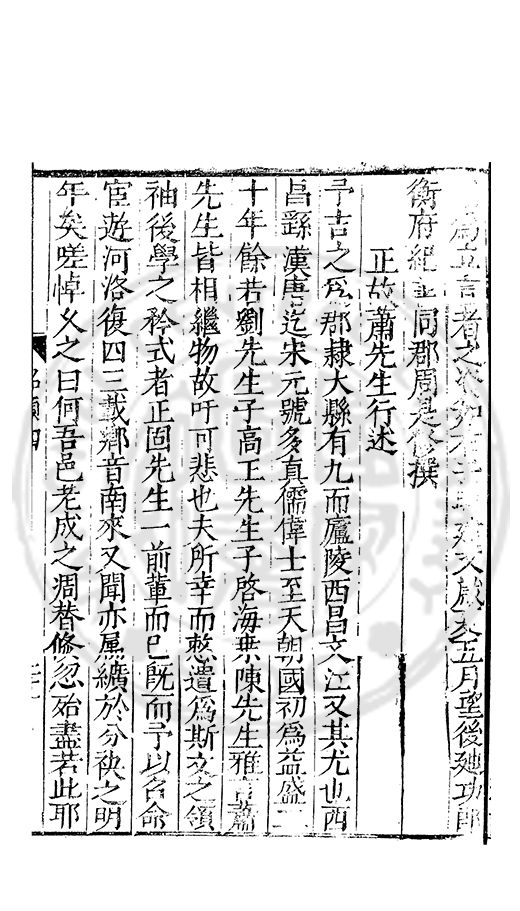 為立言者之 五月望後廸功郎
衡府紀善同郡周是修撰
正故蕭先生行述
予吉之為郡隷大縣有九而廬陵西昌文江又其尤也西
昌繇漢唐迄宋元號多真儒偉士至天朝國初為益盛二
十年餘若劉先生子高王先生子啓海桒陳先生雅言蕭
先生皆相繼物故吁可悲也夫所幸而憗遺為斯文之領
袖後學之矜式者正固先生一前輩而已既而予以召命
宦遊河洛復四三載鄉音南來又聞亦屬纊於分袂之明
年矣嗟悼久之曰何吾邑老成之凋替倐忽殆盡若此耶